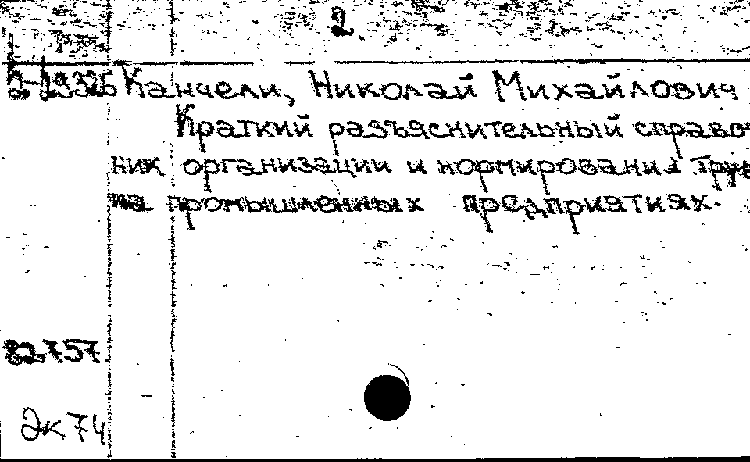 2.
Канчели, Николай Михайлович
Краткий разъяснительный справоч
ник организации и нормирования труда
на промышленных предприятиях.
82757
Эк 74